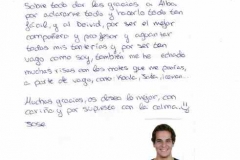 Sobre todo dar las gracias a Alba
por aclararme todo y hacerlo todo tan
fácil, y al David, por ser el mejor
compañero y profesor y aguantar
todas mis tonterías y por ser tan
vago como soy, también me he echado
muchas risas con los motes que me ponías,
a parte de vago, como
Muchas gracias, os deseo lo mejor, con
cariño y por supuesto con la calma...!!
Jose